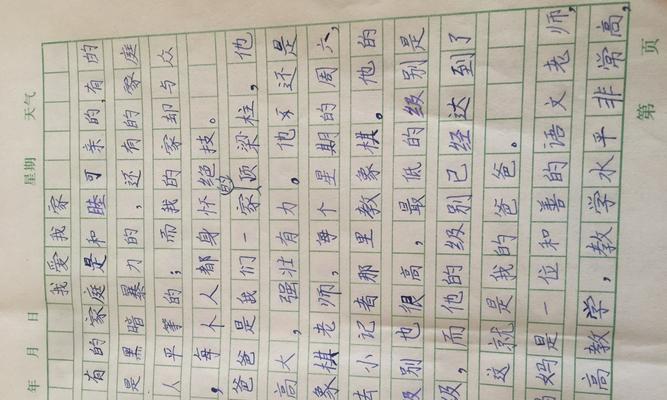 年 月 日 星期 天气
我爱我家
有的家庭是和睦可亲的,有的
是黑暗暴力的,还有的家庭
人平等的;而我的家却与众
,每个人都身怀绝技。
爸爸是我们一家的顶梁柱,他
高大,强壮有力。他还是
象棋老师,每个星期的周六,
去小记者那里教象棋。他的
级别也很高,最低的级别是
级,而他的级别已经达到了
这就是我的爸爸。
妈是一位和善的语文老师,
高教学,教学水平非常高,
第 页